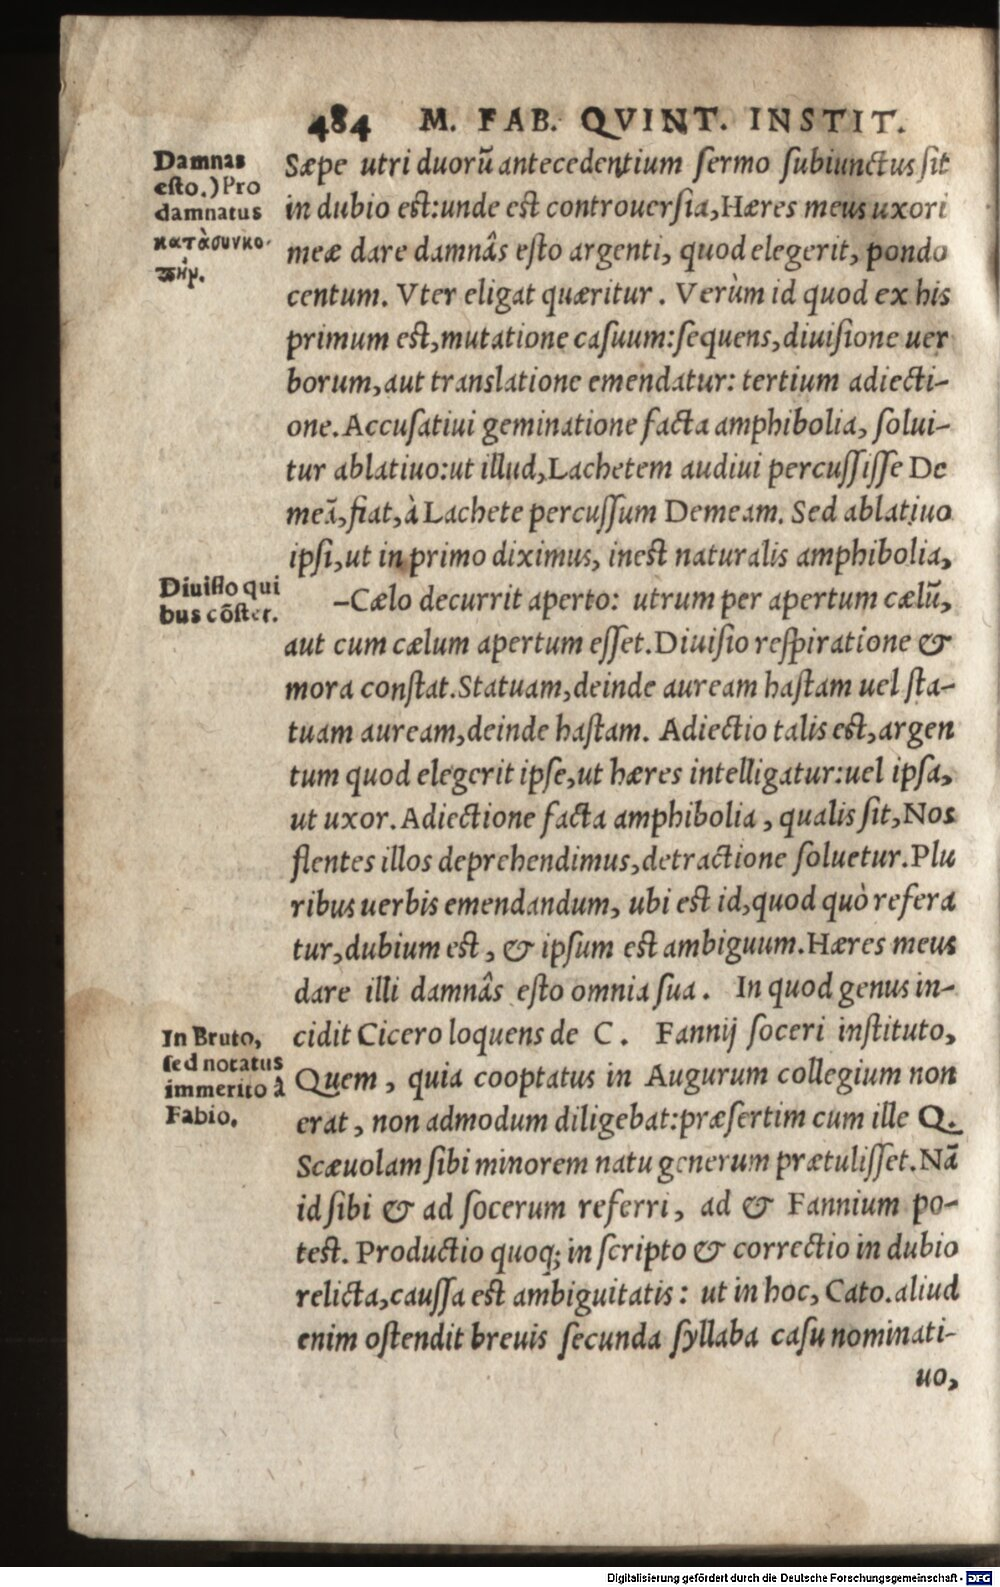 484 M. FAB. QVINT. INSTIT.
Damnas
esto.) Pro
damnatus
κατὰ συγκο-
πήν.
Sæpe utri duorũ antecedentium sermo subiunctus sit
in dubio est:unde est controuersia,Hæres meus uxori
meæ dare damnâs esto argenti, quod elegerit, pondo
centum. Vter eligat quæritur. Verùm id quod ex his
primum est,mutatione casuum:sequens,diuisione uer
borum,aut translatione emendatur: tertium adiecti-
one. Accusatiui geminatione facta amphibolia, solui-
tur ablatiuo:ut illud,Lachetem audiui percussisse De
meã,fiat,à Lachete percussum Demeam. Sed ablatiuo
ipsi,ut in primo diximus, inest naturalis amphibolia,
Diuisio qui
bus cõstet.
-Cælo decurrit aperto: utrum per apertum cælũ,
aut cum cælum apertum esset. Diuisio respiratione &
mora constat. Statuam,deinde auream hastam uel sta-
tuam auream,deinde hastam. Adiectio talis est,argen
tum quod elegerit ipse,ut hæres intelligatur:uel ipsa,
ut uxor. Adiectione facta amphibolia, qualis sit,Nos
flentes illos deprehendimus,detractione soluetur. Plu
ribus uerbis emendandum, ubi est id,quod quò refera
tur,dubium est, & ipsum est ambiguum. Hæres meus
dare illi damnâs esto omnia sua. In quod genus in-
In Bruto,
sed notatus
immerito â
Fabio.
cidit Cicero loquens de C. Fannij soceri instituto,
Quem, quia cooptatus in Augurum collegium non
erat, non admodum diligebat:præsertim cum ille Q.
Scæuolam sibi minorem natu generum prætulisset. Nã
id sibi & ad socerum referri, ad & Fannium po-
test. Productio quoq; in scripto & correctio in dubio
relicta,caussa est ambiguitatis: ut in hoc, Cato. aliud
enim ostendit breuis secunda syllaba casu nominati-
uo,
Digitalisierung gefördert durch die Deutsche Forschungsgemeinschaft - DFG